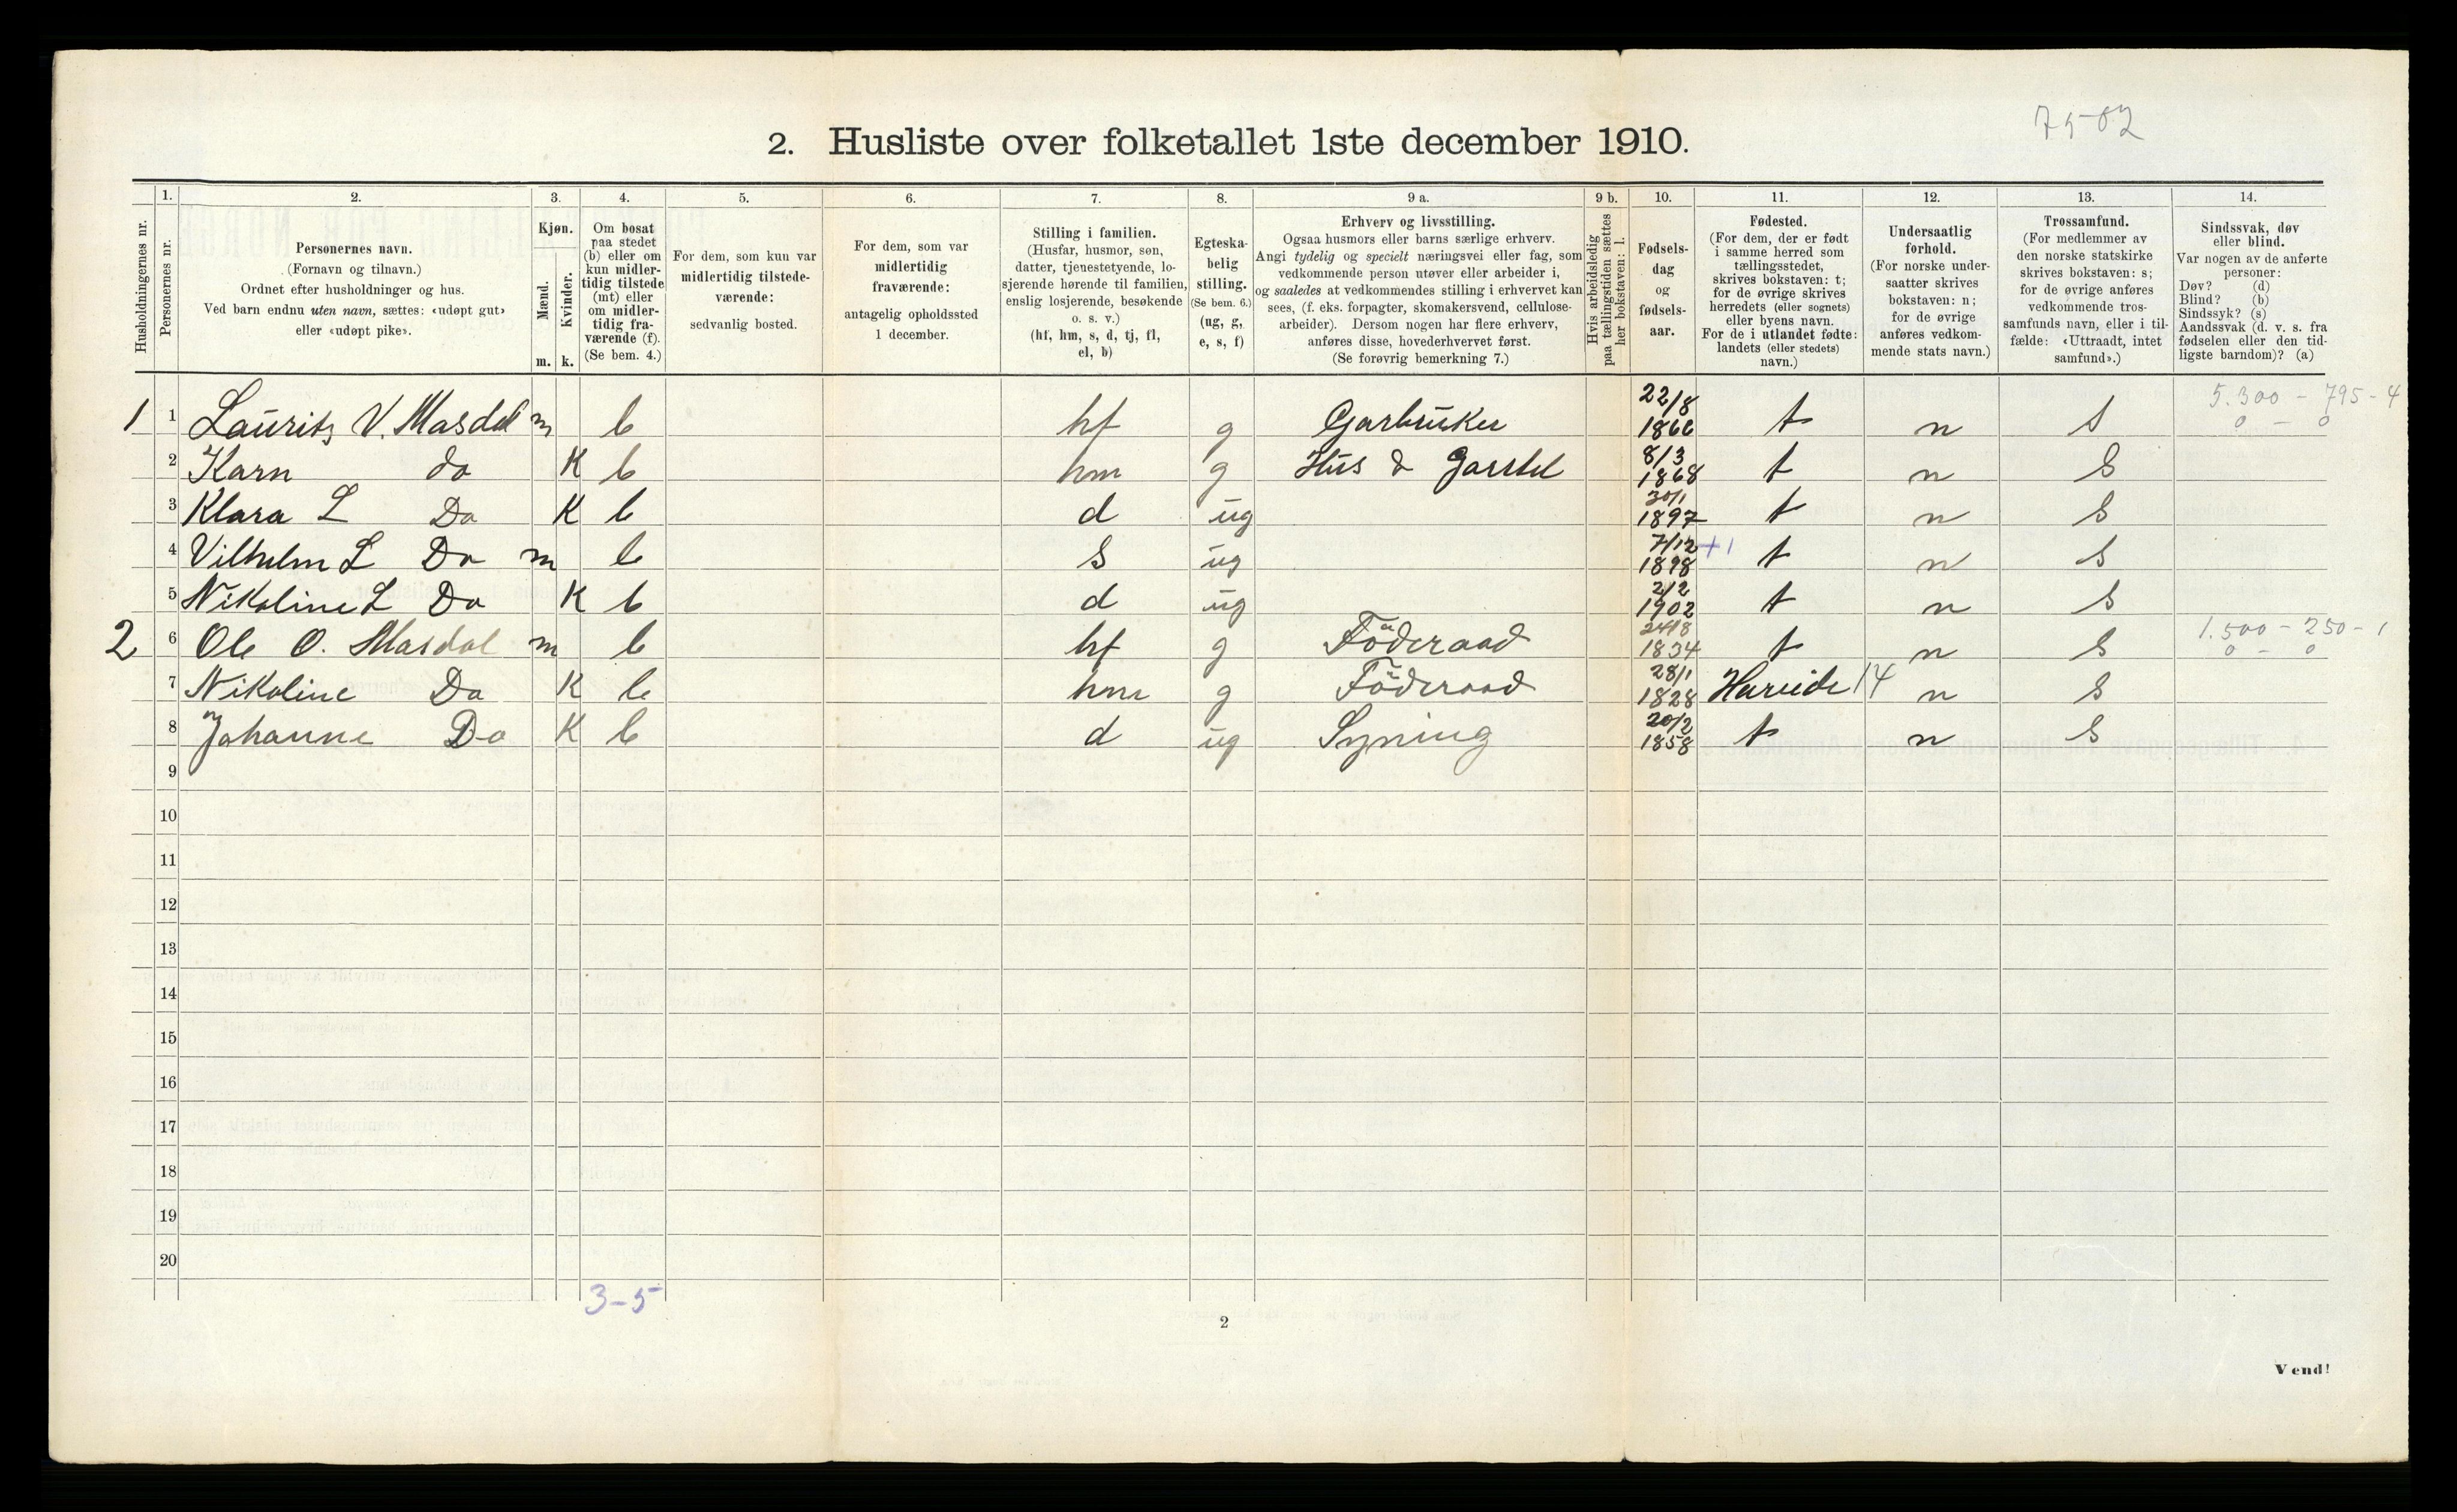 75-02
2. Husliste over folketallet 1ste december 1910.
Husholdningernes nr.
1. Personernes nr.
2. Personernes navn. (Fornavn og tilnavn.) Ordnet efter husholdninger og hus. Ved barn endnu uten navn, sættes: «udøpt gut» eller «udøpt pike».
3. Kjøn. Mænd. m. Kvinder. k.
4. Om bosat paa stedet (b) eller om kun midlertidig tilstede (mt) eller om midlertidig fraværende (f). (Se bem. 4.)
5. For dem, som kun var midlertidig tilstedeværende: sedvanlig bosted.
6. For dem, som var midlertidig fraværende: antagelig opholdssted 1 december.
7. Stilling i familien. (Husfar, husmor, søn, datter, tjenestetyende, losjerende hørende til familien, enslig losjerende, besøkende o. s. v.) (hf, hm, s, d, tj, fl, el, b)
8. Egteskabelig stilling. (Se bem. 6.) (ug, g, e, s, f)
9 a. Erhverv og livsstilling. Ogsaa husmors eller barns særlige erhverv. Angi tydelig og specielt næringsvei eller fag, som vedkommende person utøver eller arbeider i, og saaledes at vedkommendes stilling i erhvervet kan sees, (f. eks. forpagter, skomakersvend, cellulosearbeider). Dersom nogen har flere erhverv, anføres disse, hovederhvervet først. (Se forøvrig bemerkning 7.)
9 b. Hvis arbeidsledig paa tællingstiden sættes her bokstaven: l.
10. Fødselsdag og fødselsaar.
11. Fødested. (For dem, der er født i samme herred som tællingsstedet, skrives bokstaven: t; for de øvrige skrives herredets (eller sognets) eller byens navn. For de i utlandet fødte: landets (eller stedets) navn.)
12. Undersaatlig forhold. (For norske undersaatter skrives bokstaven: n; for de øvrige anføres vedkommende stats navn.)
13. Trossamfund. (For medlemmer av den norske statskirke skrives bokstaven: s; for de øvrige anføres vedkommende trossamfunds navn, eller i tilfælde: «Uttraadt, intet samfund».)
14. Sindssvak, døv eller blind. Var nogen av de anførte personer: Døv? (d) Blind? (b) Sindssyk? (s) Aandssvak (d. v. s. fra fødselen eller den tidligste barndom)? (a)
1 1 Lauritz V. Masdal m b hf g Garbruker 22/8 1866 t n s 5.300 - 795 - 4 0 - 0
2 Karn do K b hm g Hus & Garstel 8/3 1868 t n s
3 Klara L Do K b d ug 30/1 1897 t n s
4 Vilhelm L Do m b s ug 7/12 1898 +1 t n s
5 Nikoline L Do K b d ug 2/2 1902 t n s
2 6 Ole O. Masdal m b hf g Föderaad 24/8 1834 t n s 1.500 - 250 - 1 0 - 0
7 Nikoline Do K b hm g Föderaad 28/1 1828 Hareide 14 n s
8 Johanne Do K b d ug Syning 20/2 1858 t n s
9
10
11
12
13
14
15
16
17
18
19
20
3-5
2
Vend!